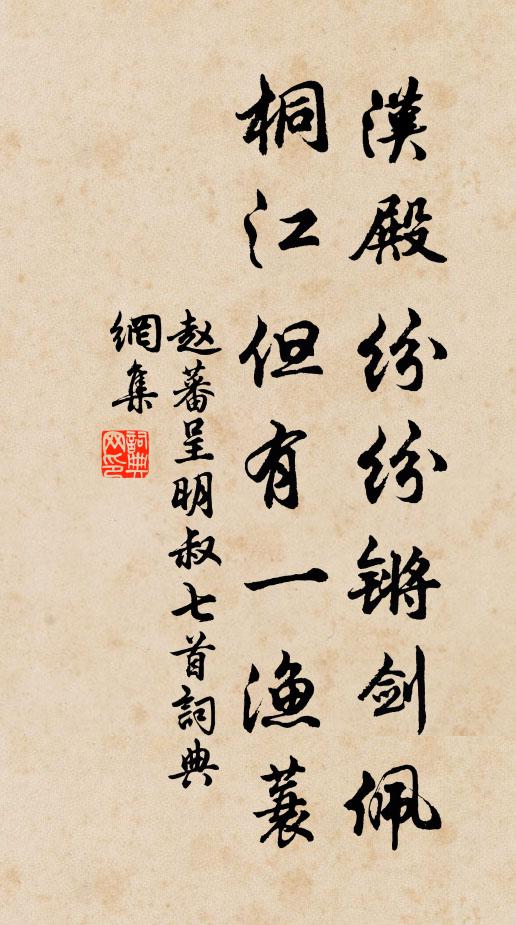 漢殿纷纷锵剑佩
桐江但有一渔蓑
赵蕃呈明叔七首詞典
網集
詞典
网印